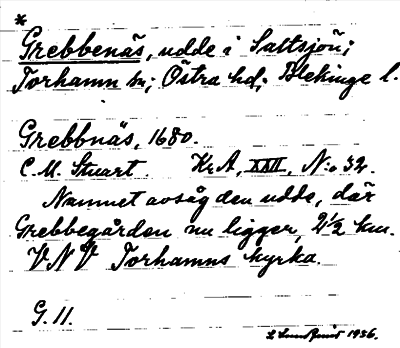 *
Grebbenäs, udde i Saltsjön;
Torhamn sn; Östra hd; Blekinge l.
Grebbnäs, 1680.
C. M. Stuart. KrA, XXII, N:o 32.
Namnet avsåg den udde, där
Grebbegården nu ligger, 2½ km.
VNV Torhamns kyrka.
G. 11.
1956.